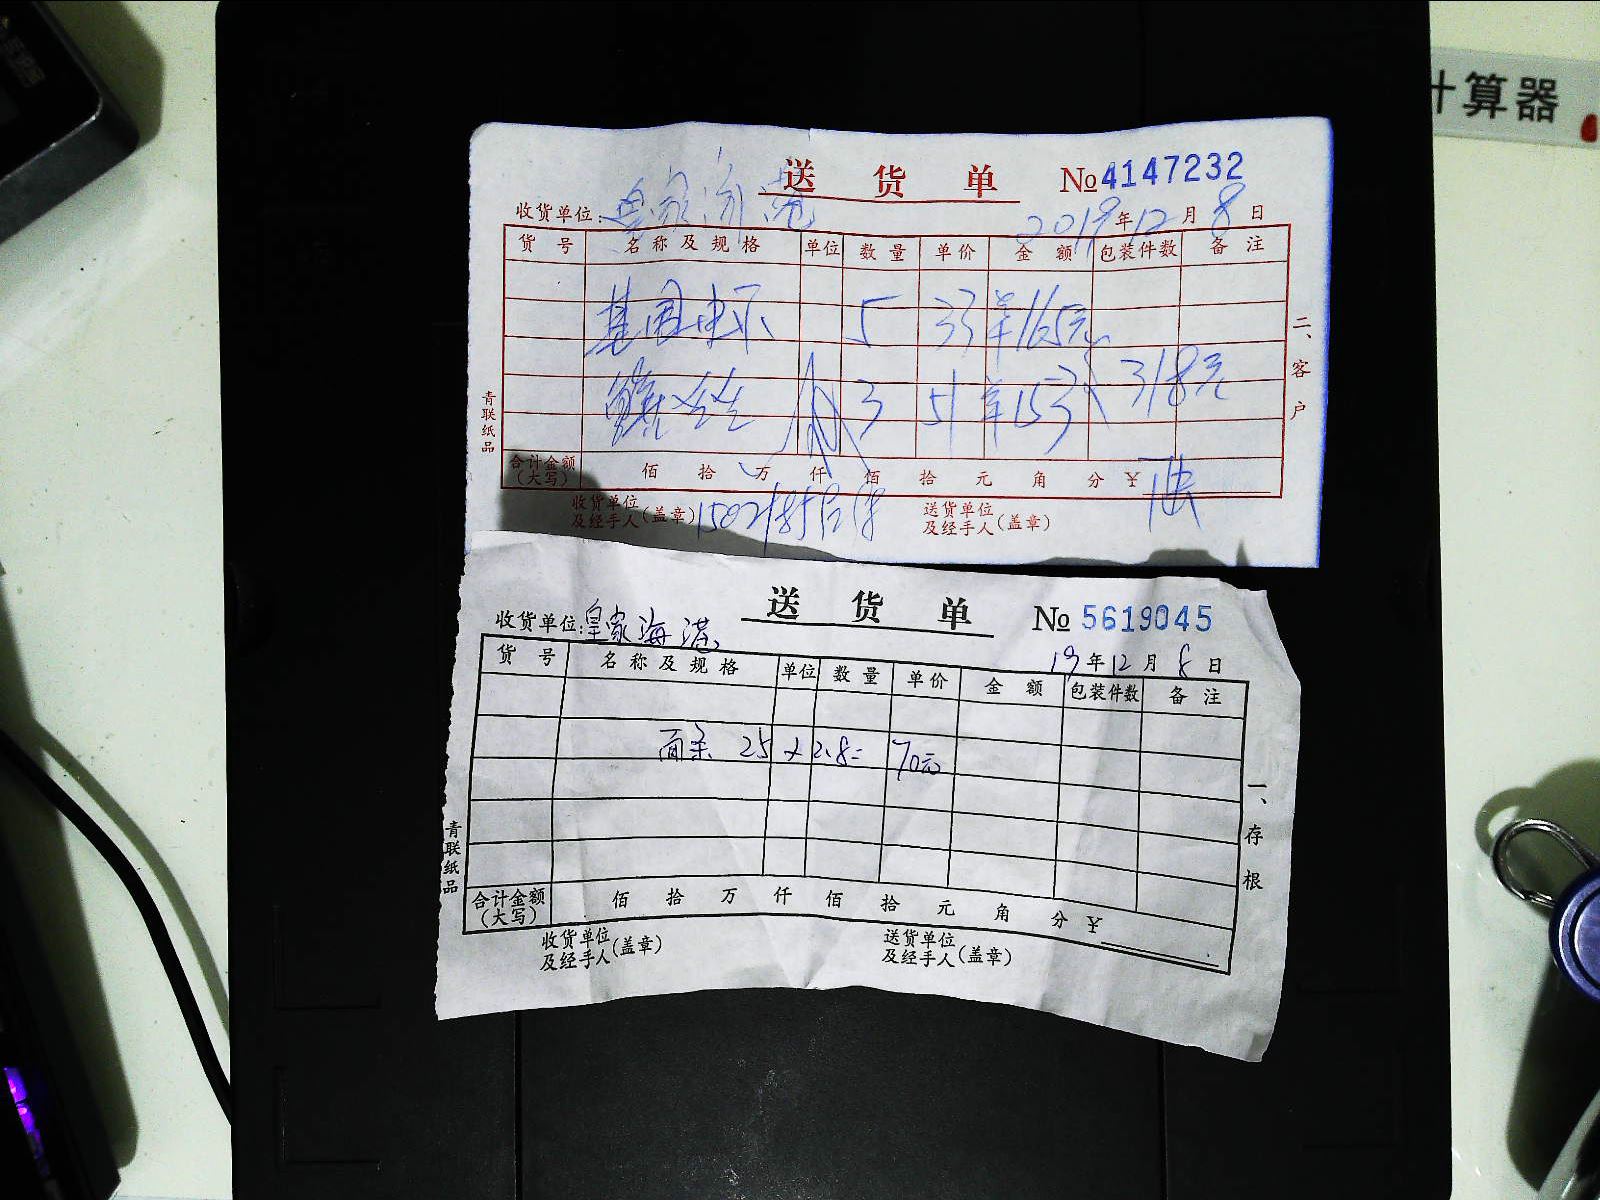 计算器
送 货 单 №4147232
收货单位:皇家海港 2019年12月8日
货号 名称及规格 单位 数量 单价 金额 包装件数 备注
基围虾 5 33 羊165元
3 51 羊153 318元
合计金额(大写) 佰 拾 万 仟 佰 拾 元 角 分 ¥
收货单位及经手人(盖章) 送货单位及经手人(盖章)
二、客户
青联纸品
送 货 单 № 5619045
收货单位:皇家海港
19年12月8日
货号 名称及规格 单位 数量 单价 金额 包装件数 备注
面条 25 x 2.8= 70元
合计金额(大写) 佰 拾 万 仟 佰 拾 元 角 分 ¥
收货单位及经手人(盖章) 送货单位及经手人(盖章)
一、存根
青联纸品